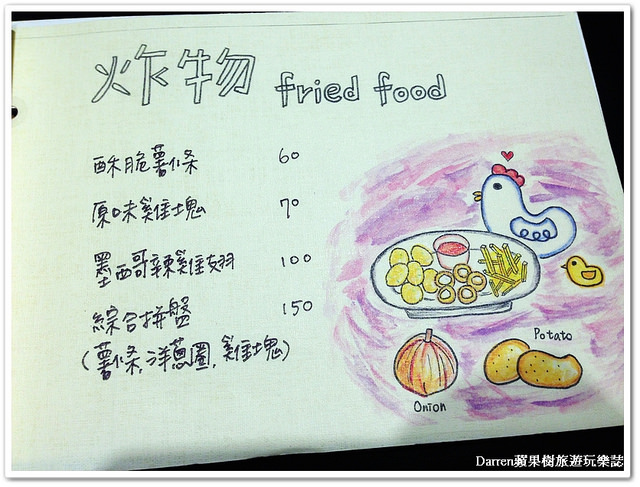 炸物 fried food
酥脆薯條 60
原味雞塊 70
墨西哥辣雞翅 100
綜合拼盤 150
(薯條,洋蔥圈,雞塊)
Potato
Onion
Darren蘋果樹旅遊玩樂誌